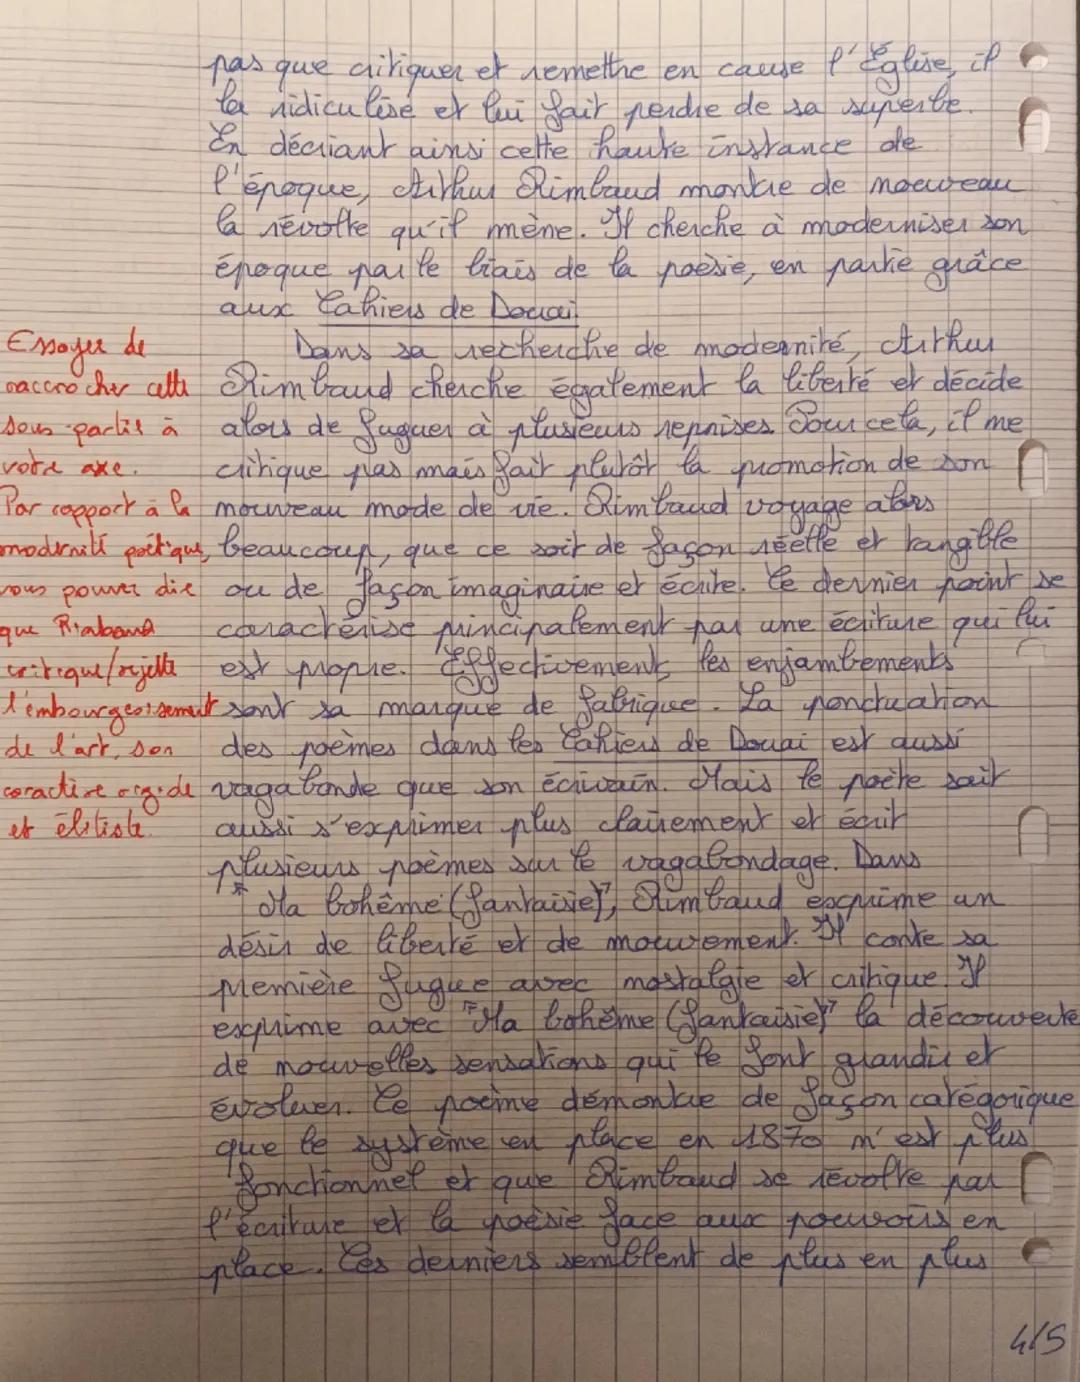 pas que critiquer et remettre en cause l'Église, il
la ridiculise et lui fait perdre de sa superbe.
En décriant ainsi cette haute instance de
l'époque, Arthur Rimbaud montre de nouveau
la révolte qu'il mène. Il cherche à moderniser son
époque par le biais de la poèsie, en partie grâce
aux Cahiers de Douai.
Dans sa recherche de modernité, Arthur
Rimbaud cherche également la liberté et décide
alors de fuguer à plusieurs reprises. Pour cela, il ne
critique pas mais fait plutôt la promotion de son
nouveau mode de vie. Rimbaud voyage alors
beaucoup, que ce soit de façon réelle et tangible
ou de façon imaginaire et écrite. Ce dernier point se
caractérise principalement par une écriture qui lui
est propre. Effectivement, les enjambements
sont sa marque de fabrique. La ponctuation
des poèmes dans les Cahiers de Douai est aussi
vagabonde que son écrivain. Mais le poète sait
aussi s'exprimer plus clairement et écrit
plusieurs poèmes sur le vagabondage. Dans
"Ma bohême (fantaisie)", Rimbaud exprime un
désir de liberté et de mouvement. Il conte sa
première fugue avec nostalgie et critique. Il
exprime avec "Ma bohême (fantaisie)" la découverte
de nouvelles sensations qui le font grandir et
évoluer. Ce poème démontre de façon catégorique
que le système en place en 1870 n'est plus
fonctionnel et que Rimbaud se révolte par
l'écriture et la poèsie face aux pouvoirs en
place. Ces derniers semblent de plus en plus
Essayer de
raccrocher cette
sous-partie à
votre axe.
Par rapport à la
modernité poétique,
vous pouvez dire
que Rimbaud
critique/rejette
l'embourgeoisement
de l'art, son
caractère rigide
et élitiste.
4/5